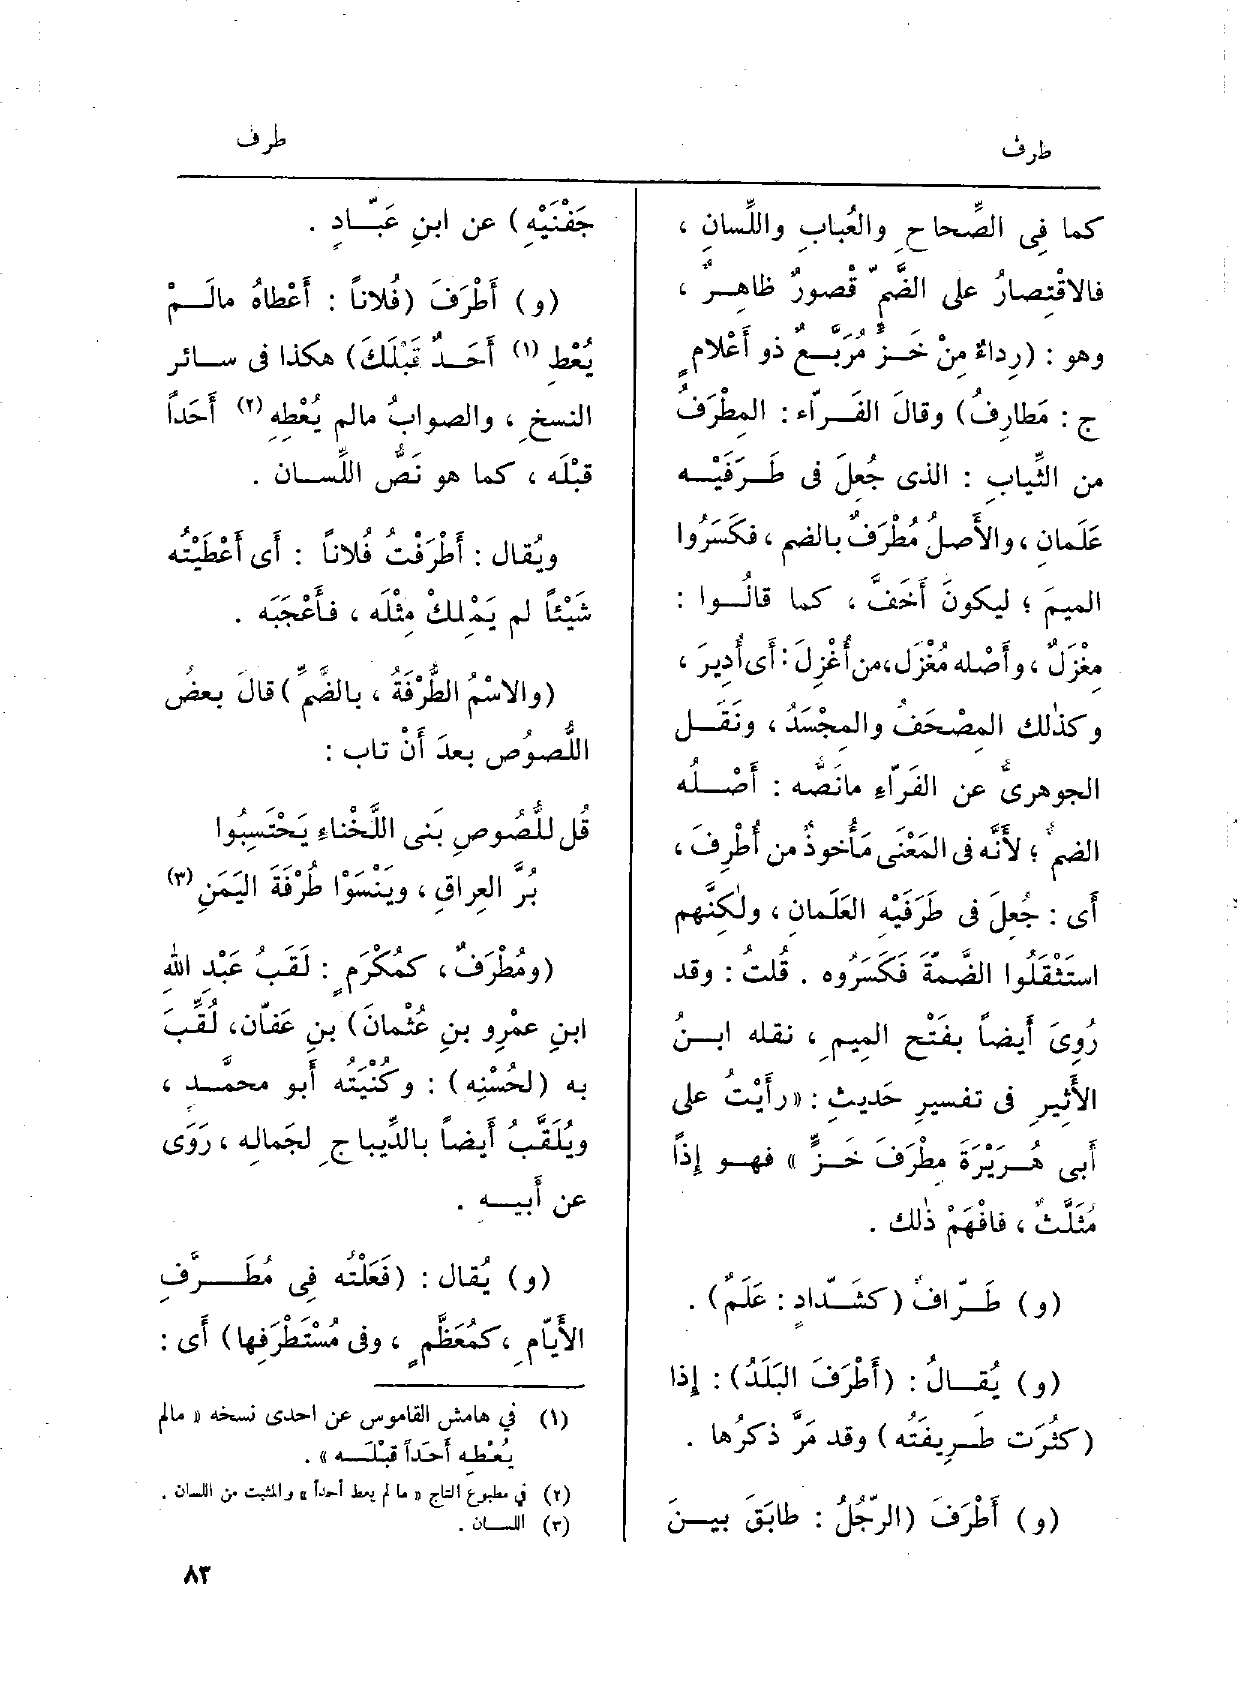 طرف
طرف
كما فى الصِّحاحِ والعُبابِ واللِّسانِ ،
فالاقْتِصارُ على الضَّمِّ قُصورٌ ظاهِرٌ ،
وهو : (رِداءٌ مِنْ خَزٍّ مُرَبَّعٌ ذو أَعْلامٍ
ج : مَطارِفُ) وقالَ الفَرّاء : المِطْرَفُ
من الثِّيابِ : الذى جُعِلَ فى طَرَفَيْه
عَلَمانِ ، والأَصلُ مُطْرَفٌ بالضم ، فكَسَرُوا
الميمَ ؛ ليكونَ أَخَفَّ ، كما قالُوا :
مِغْزَلٌ ، وأَصْله مُغْزَل ، من أُغْزِلَ : أَى أُدِيرَ ،
وكذٰلك المِصْحَفُ والمِجْسَدُ ، ونَقَل
الجوهرىُّ عن الفَرّاءِ مانَصُّه : أَصْلُه
الضمُّ ؛ لأَنَّه فى المَعْنَى مَأْخوذٌ من أُطْرِفَ ،
أَى : جُعِلَ فى طَرَفَيْهِ العَلَمانِ ، ولٰكِنَّهم
استَثْقَلُوا الضَّمَّةَ فكَسَرُوه . قُلتُ : وقد
رُوِىَ أَيضاً بفَتْحِ المِيمِ ، نقله ابنُ
الأَثِيرِ فى تفسيرِ حَديثِ : «رأَيْتُ على
أَبى هُرَيْرَةَ مِطْرَفَ خَزٍّ » فهو إِذاً
مُثَلَّثٌ ، فافْهَمْ ذٰلك .
(و) طَرّافٌ (كشَدّادٍ : عَلَمٌ) .
(و) يُقالُ : (أَطْرَفَ البَلَدُ) : إِذا
(كثُرَت طَرِيفَتُه) وقد مَرَّ ذكرُها .
(و) أَطْرَفَ (الرّجُلُ : طابَقَ بينَ
جَفْنَيْهِ) عن ابنِ عَبّادٍ .
(و) أَطْرَفَ (فُلاناً : أَعْطاهُ مالَمْ
يُعْطِ (١) أَحَدٌ قَبْلَكَ) هكذا فى سائر
النسخ ، والصوابُ مالم يُعْطِهِ (٢) أَحَداً
قبْلَه ، كما هو نَصُّ اللِّسان .
ويُقال : أَطْرَفْتُ فُلاناً : أَى أَعْطَيْتُه
شَيْئاً لم يَمْلِكْ مِثْلَه ، فأَعْجَبَه .
(والاسْمُ الطُّرْفَةُ ، بالضَّمِّ) قالَ بعضُ
اللُّصُوصِ بعدَ أَنْ تاب :
قُل للُّصُوصِ بَنى اللَّخْناءِ يَحْتَسِبُوا
بُرَّ العِراقِ ، ويَنْسَوْا طُرْفَةَ اليَمَنِ (٣)
(ومُطْرَفٌ ، كمُكْرَمٍ : لَقَبُ عَبْدِ اللهِ
ابنِ عمْرِو بنِ عُثْمانَ) بنِ عَفّان، لُقِّبَ
به (لحُسْنِه) : وكُنْيَتُه أَبو محمَّد ،
ويُلَقَّبُ أَيضاً بالدِّيباجِ لجَمالِه ، رَوَى
عن أَبيه .
(و) يُقال : (فَعَلْتُه فِى مُطَرَّفِ
الأَيّامِ ، كمُعَظَّمٍ ، وفى مُسْتَطْرَفِها) أَى :
(١) في هامش القاموس عن احدى نسخه « مالم
يُعْطِه أَحَداً قَبْلَه » .
(٢) في مطبوع التاج « ما لم يعط أحداً » والمثبت من اللسان .
(٣) اللسان .
٨٣